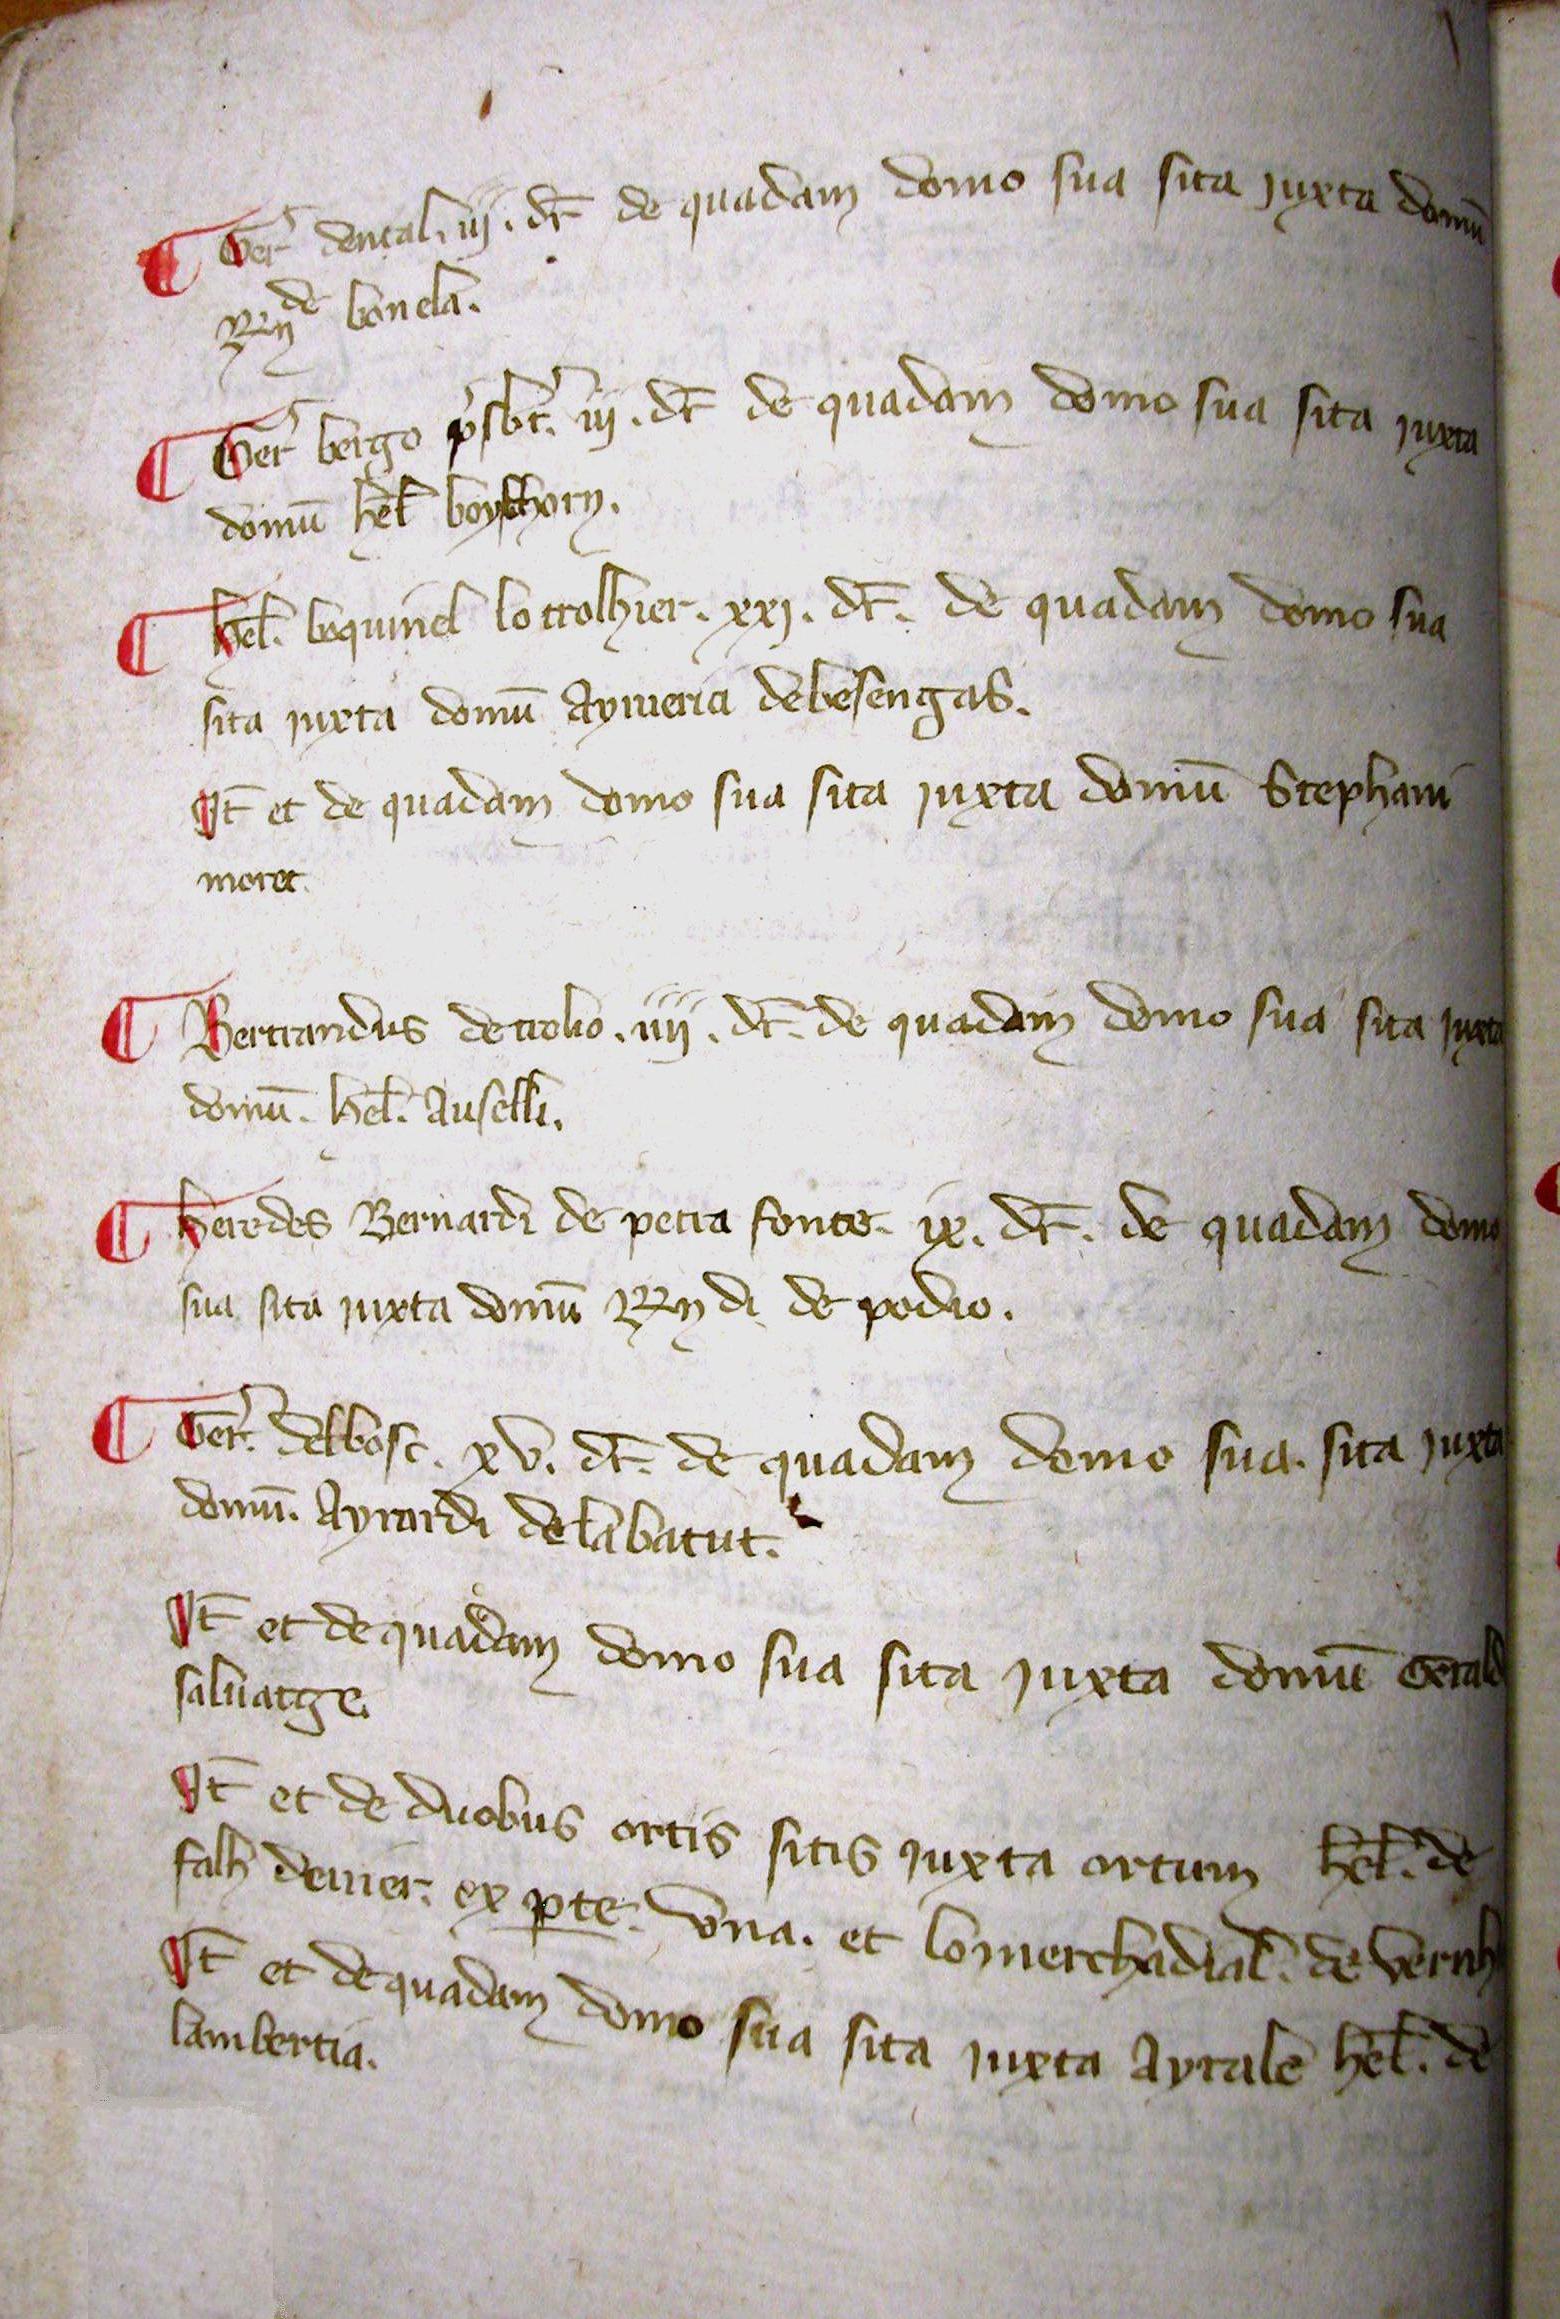 ¶ Ger dental. iij. dr de quadam domo sua sita juxta domū
Rynde bonela.
¶ Ger bergo psbr. iij. dr de quadam domo sua sita juxta
domū hel
¶ hel. boquinel lo trolhier. xxj. dr. de quadam domo sua
sita juxta domū Aymeria de besengas.
It et de quadam domo sua sita juxta domū Stephani
moret.
¶ Bertrandus de trolio. iiij. dr. de quadam domo sua sita juxta
domū. hel. Auselli.
¶ heredes Bernardi de petra fonte. ix. dr. de quadam domo
sua sita juxta domū Ryndi de podio.
¶ Ger. del bosc. xv. dr. de quadam domo sua. sita juxta
domū. Ayrardi de la batut.
It et de quadam domo sua sita juxta domū Gerald
saluatge.
It et de duobus ortis sitis juxta ortum hel. de
falh ex pte. vna. et lo merchadial. de vernh
It et de quadam domo sua sita juxta Ayrale hel. de
lambertia.